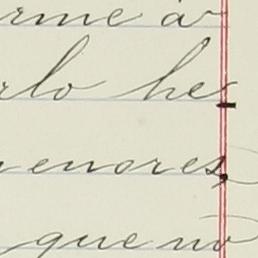 rme á
rlo he-
enores,
que no